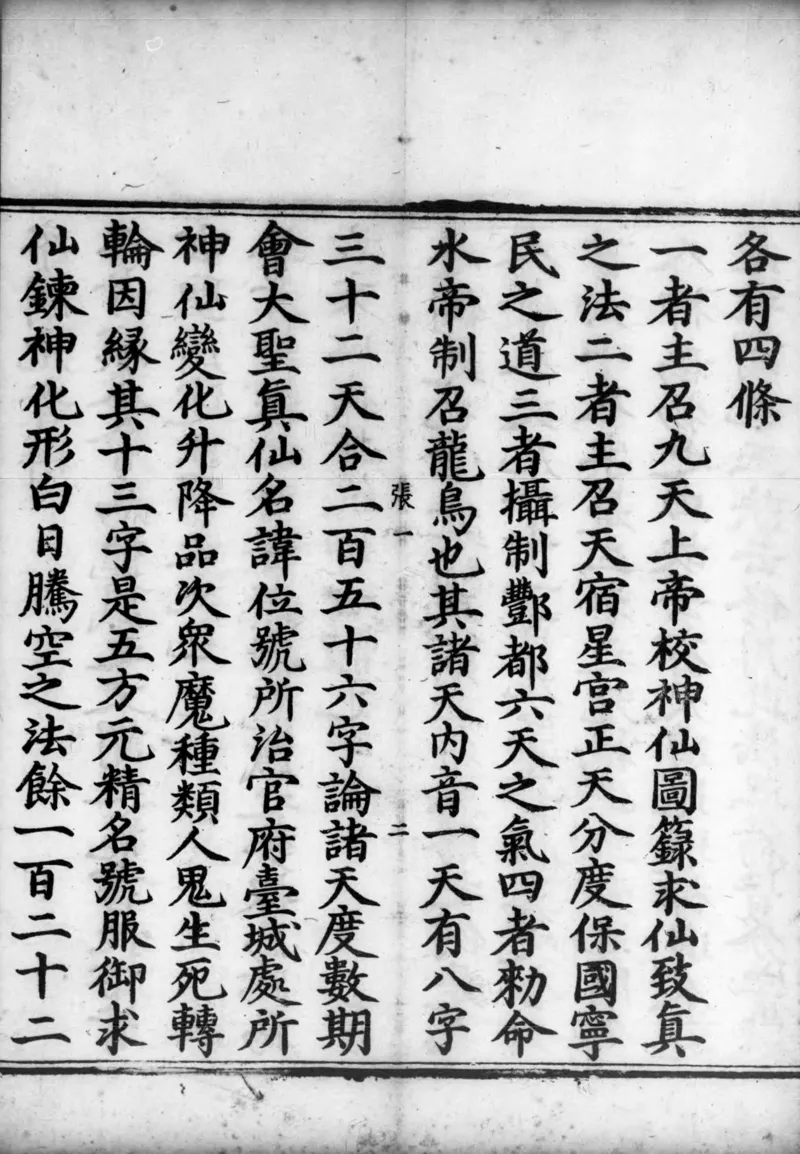 各有四條
一者主召九天上帝校神仙圖籙求仙致眞
之法二者主召天宿星宮正天分度保國寧
民之道三者攝制酆都六天之氣四者勑命
水帝制召龍鳥也其諸天內音一天有八字
張一 二
三十二天合二百五十六字論諸天度數期
會大聖眞仙名諱位號所治官府臺城處所
神仙變化升降品次衆魔種類人鬼生死轉
輪因緣其十三字是五方元精名號服御求
仙鍊神化形白日騰空之法餘一百二十二